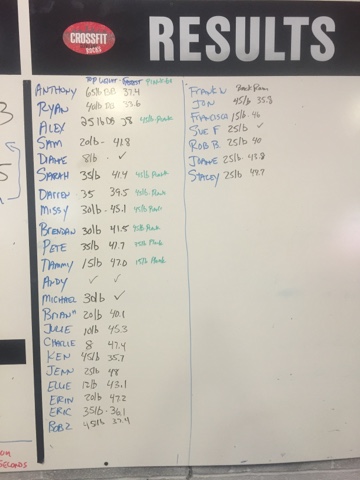 CROSSFIT
ROCKS
RESULTS
TOP WEIGHT - FASTEST
ANTHONY 65lb DB 37.4
RYAN 40lb DB 33.6
ALEX 25lb DB 38
SAM 20lb - 41.8
DIANE 8lb - ✓
SARAH 35lb 41.4 45lb Plank
DARREN 35 39.5 45lb Plank
MISSY 30lb - 45.1 45lb Plank
BRENDAN 30lb 41.5 45lb Plank
PETE 35lb 41.7 45lb Plank
TAMMY 15lb 47.0 15lb Plank
ANDY ✓ ✓
MICHAEL 30lb ✓
BRIAN 20lb 40.1
JULIE 10lb 45.3
CHARLIE 8 47.4
KEN 45lb 35.7
JENN 25lb 48
ELLIE 12lb 43.1
ERIN 20lb 47.2
ERIC 35lb - 36.1
ROB Z 45lb 37.4
FRANK W
JON 45lb 35.8
FRANCISCO 15lb - 46
SUE F 25lb ✓
ROB B 25lb 40
JOANE 25lb 43.8
STACEY 25lb 49.7
SECONDS